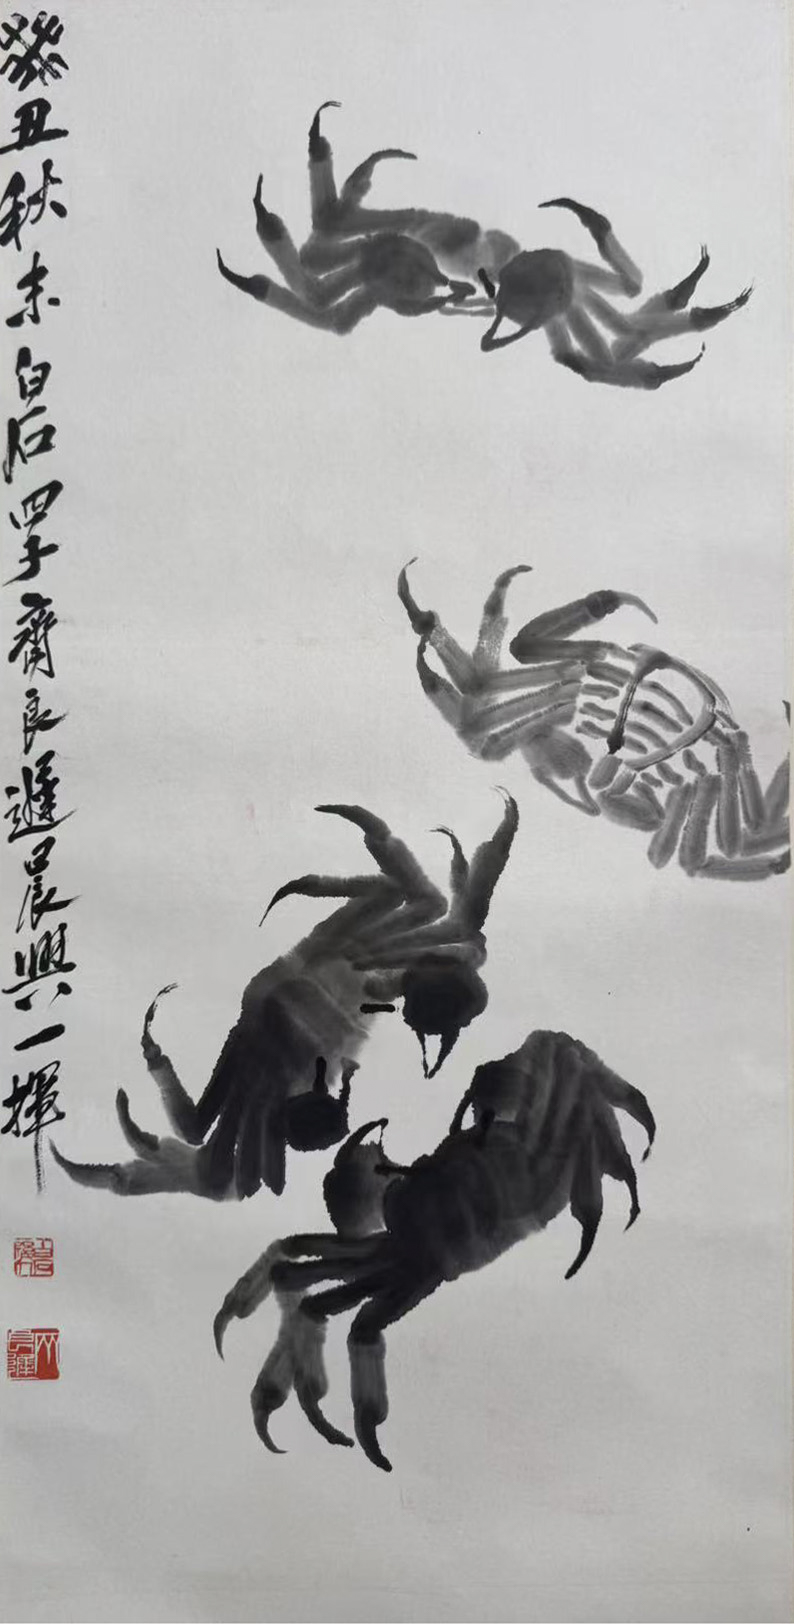 癸丑秋末白石四子齊良遲晨興一揮